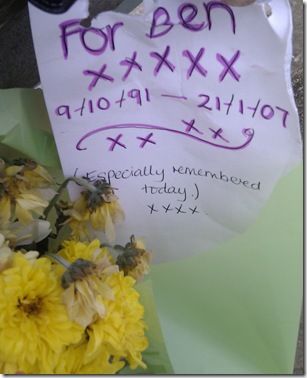 For Ben
x x x x x
9/10/91 — 21/1/07
x x
x x
(Especially remembered
today.)
x x x x